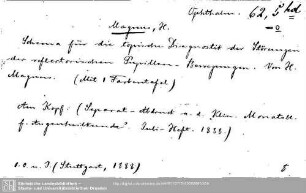 Ophthalm. 62, 5
Magnus, H.
Schema für die topische Diagnostik der Störungen
der reflectorischen Pupillen-Bewegungen. Von H.
Magnus. (Mit 1 Farbentafel)
Am Kopf: (Separat-Abdruck a. d. Klin. Monatsbl.
f. Augenheilkunde. Juli-Heft. 1888.)
(Stuttgart, 1888)